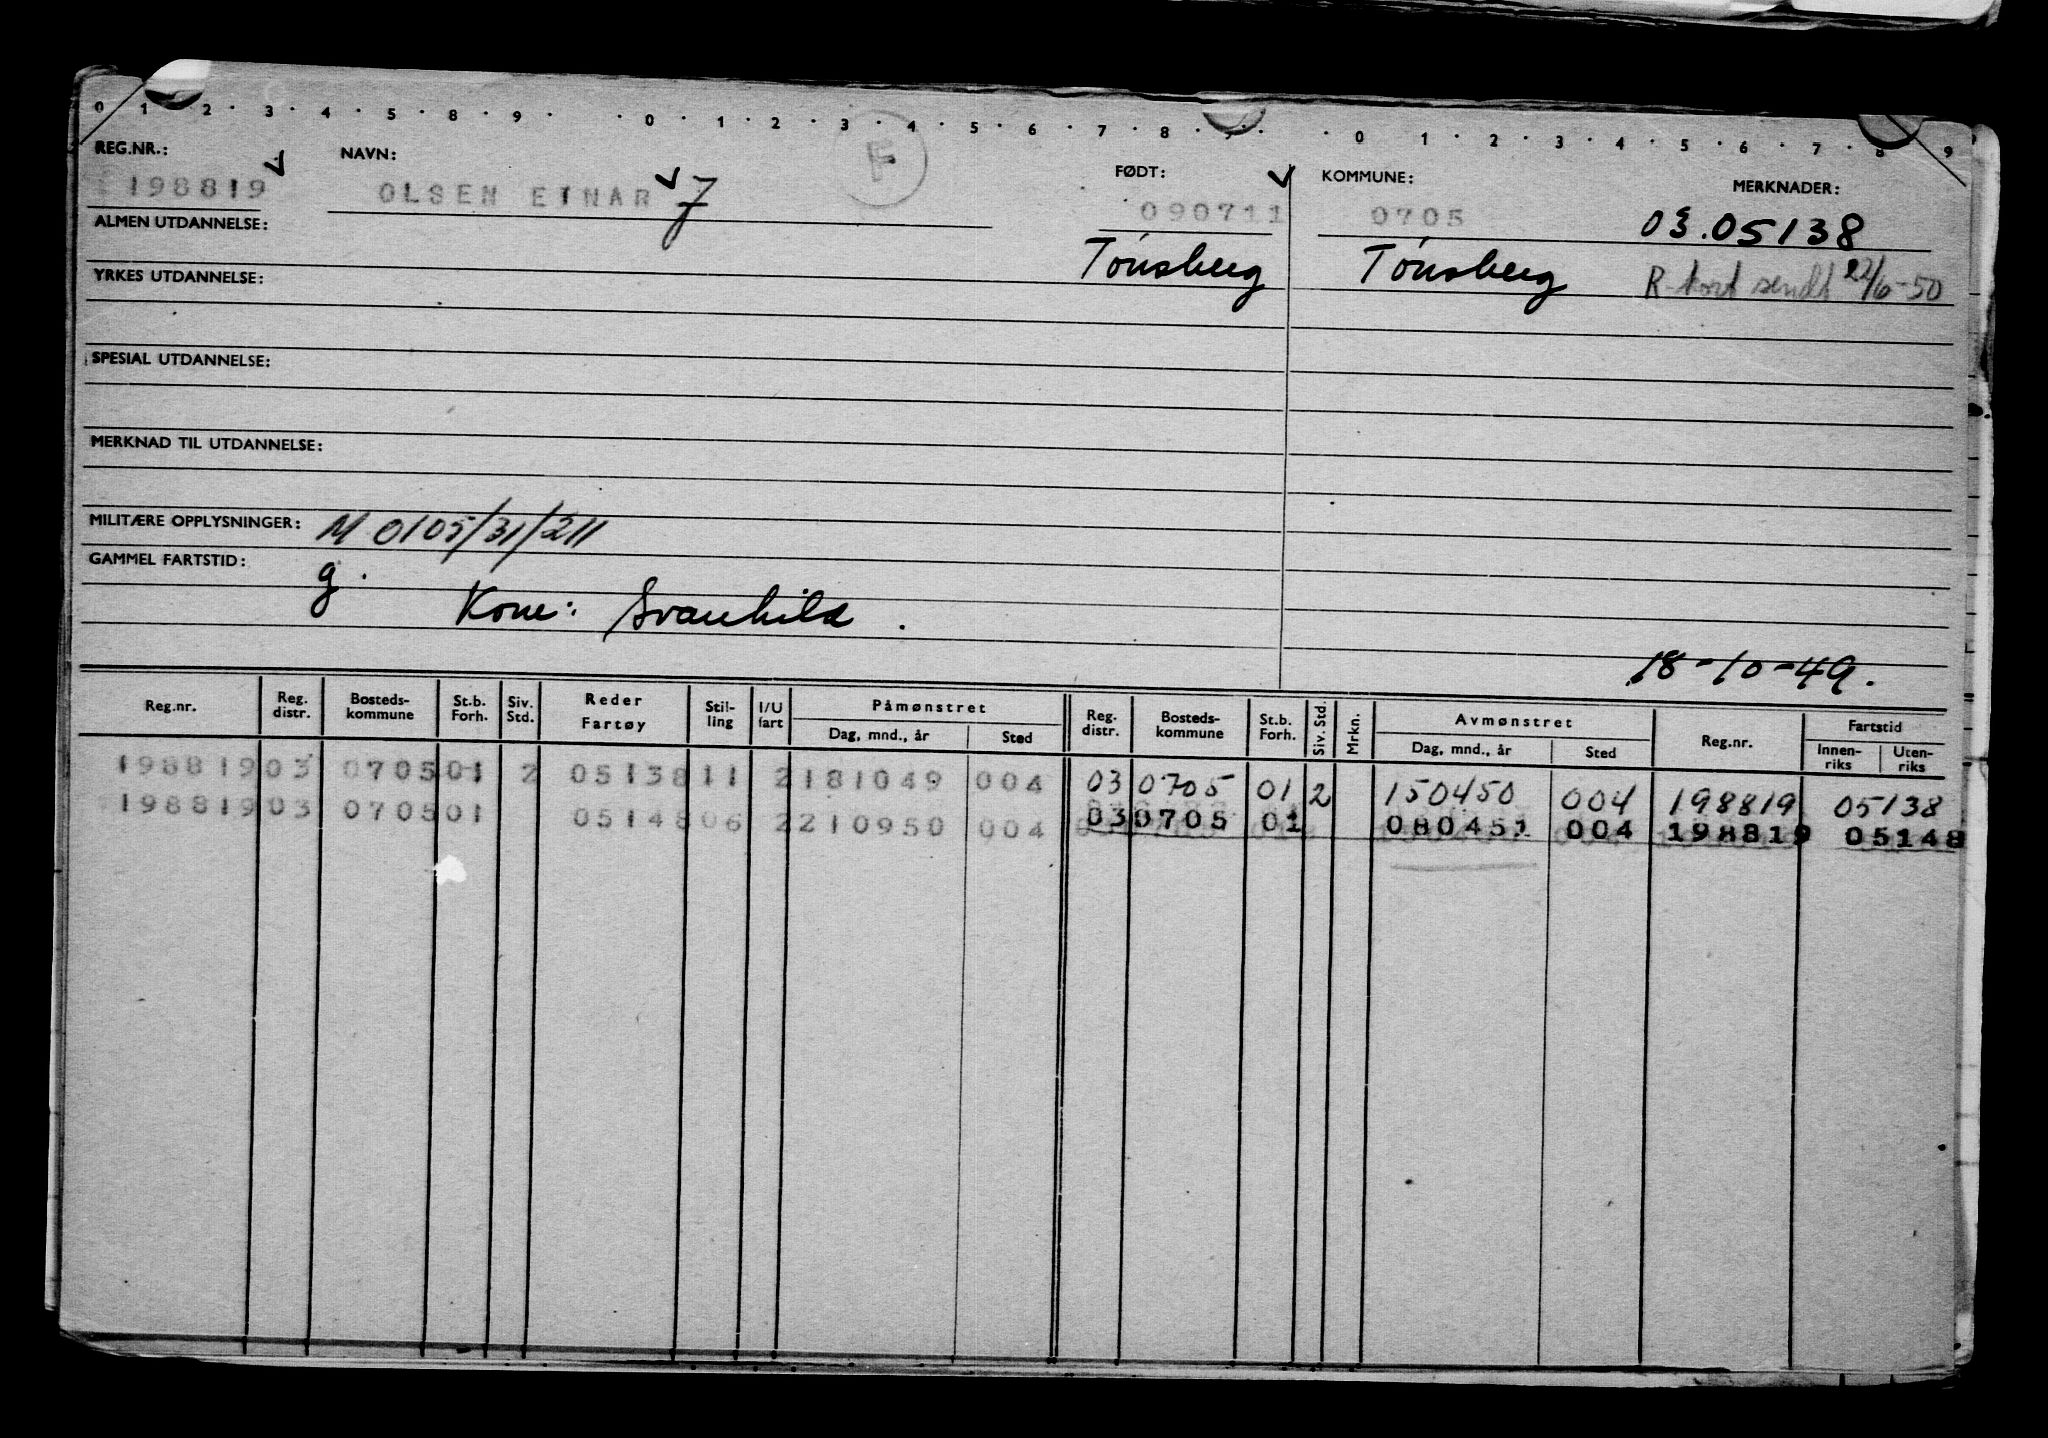 0 1 · 2 · 3 · 4 · 5 · 8 · 9 · · 0 · 1 · 2 · 3 · 4 · 5 · 6 · 7 · 8 · 9 · · 0 · 1 · 2 · 3 · 4 · 5 · 6 · 7 · 8 · 9
REG.NR.: NAVN: F FØDT: KOMMUNE: MERKNADER:
198819 OLSEN EINAR J 090711 0705 03.05138
ALMEN UTDANNELSE: Tönsberg Tönsberg R-kort sendt 22/6-50
YRKES UTDANNELSE:
SPESIAL UTDANNELSE:
MERKNAD TIL UTDANNELSE:
MILITÆRE OPPLYSNINGER: M 0105/31/211
GAMMEL FARTSTID: g.
Kone: Svanhild.
18-10-49.
Reg.nr. Reg. distr. Bosteds-kommune St.b. Forh. Siv. Std. Reder Fartøy Stil-ling I/U fart Påmønstret Dag, mnd., år Sted Reg. distr. Bosteds-kommune St.b. Forh. Siv. Std. Mrkn. Avmønstret Dag, mnd., år Sted Reg.nr. Fartstid Innen-riks Uten-riks
198819 03 0705 01 2 05138 11 2 181049 004 03 0705 01 2 150450 004 198819 05138
198819 03 0705 01 05148 06 2 210950 004 03 0705 01 080451 004 198819 05148